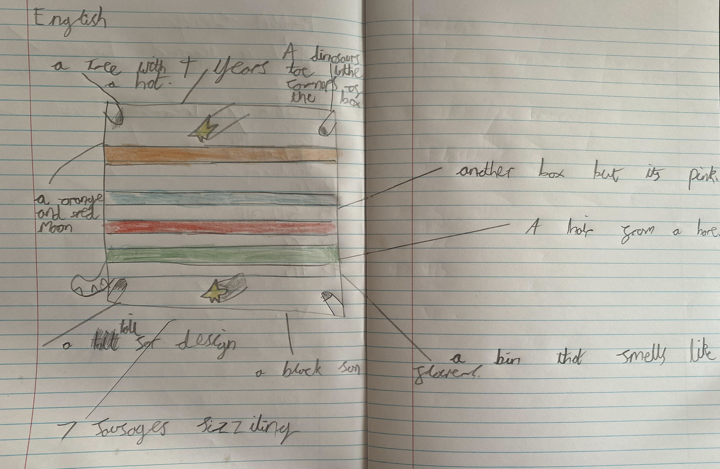 English
a Tree with
a hat.
7 years
A dinosaurs
toe in the
corners of
the box
a orange
and red
Moon
another box but its pink.
A hair from a hare.
a tail for design
a black sun
a bin that smells like
flowers.
7 sausages sizziling